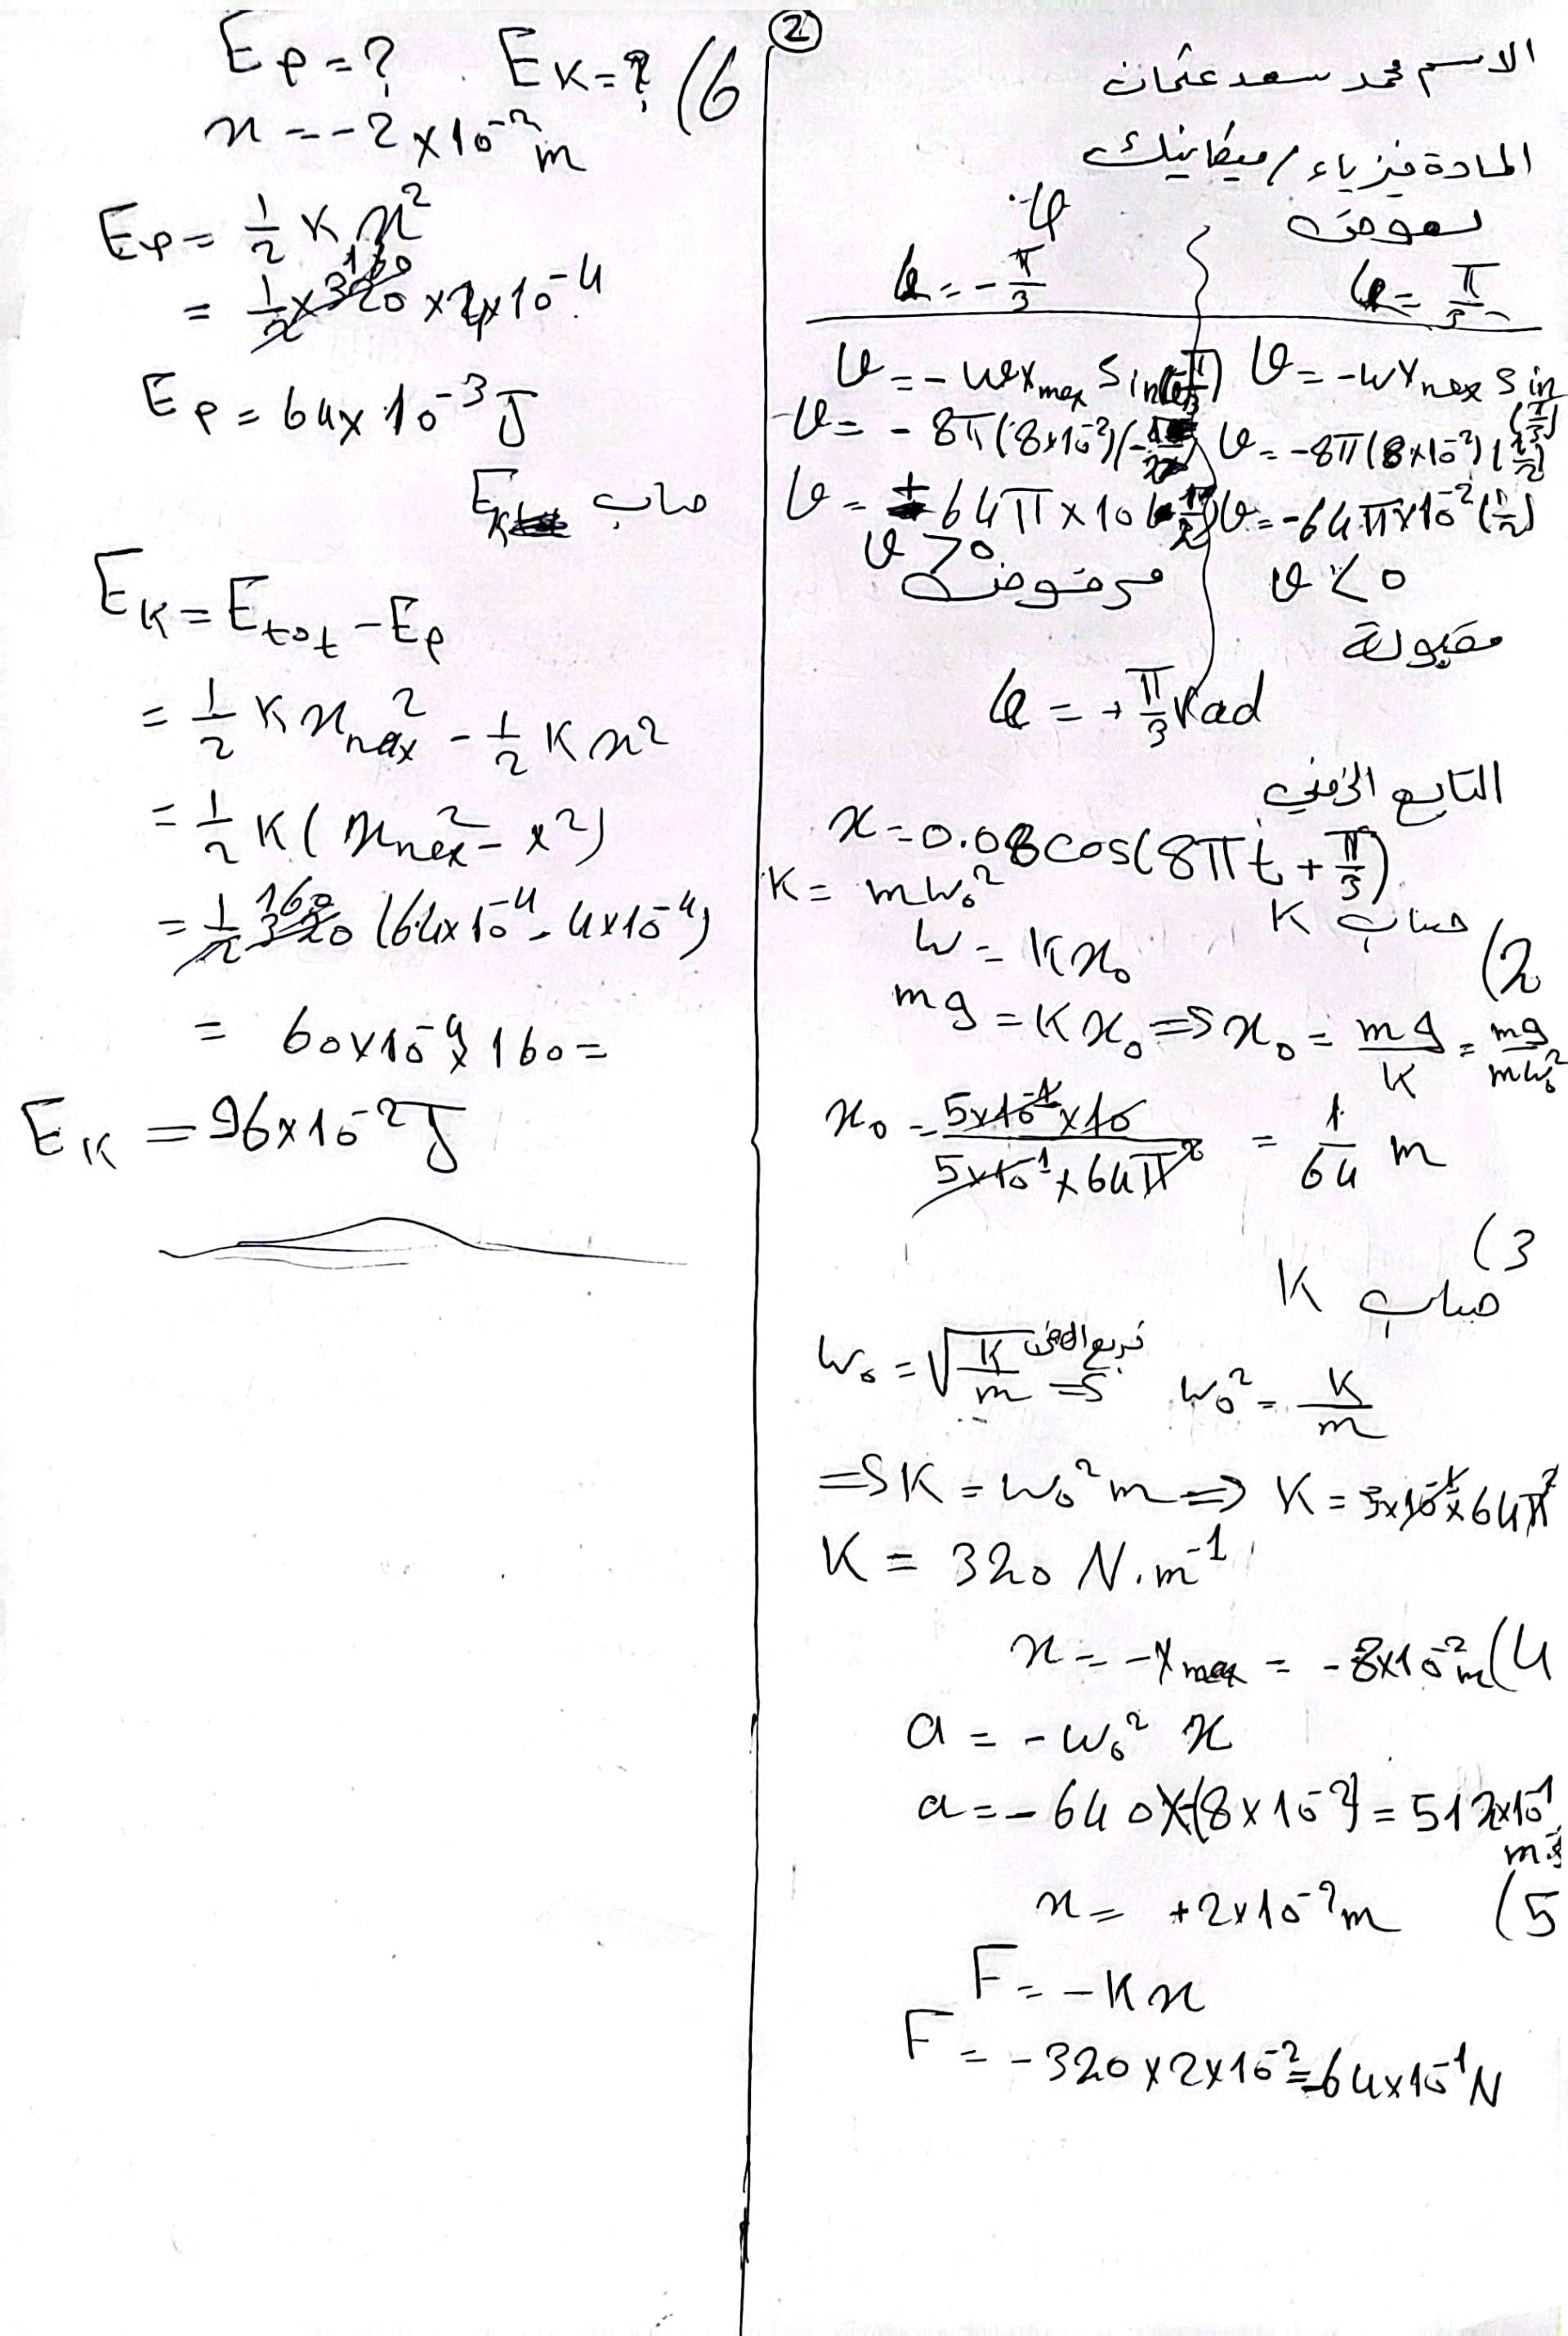 ②
الاسم محمد سعد عثمان
المادة فيزياء / ميكانيك
نعوض
φ = π/3
φ = -π/3
v = -ωx max sin (π/3)
v = -8π(8×10^-2)
v = -64π×10^-2
v < 0
مقبولة
v = -ωx max sin
v = -8π(8×10^-2)
v = +64π×10
v > 0
مرفوض
φ = +π/3 rad
التابع الزمني
x = 0.08 cos(8πt + π/3)
حساب K
K = mω₀²
2)
W = Kx₀
mg = Kx₀ ⇒ x₀ = mg/K = mg/mω₀²
x₀ = 5×10^-1×10 / 5×10^-1×64π² = 1/64 m
3)
حساب K
ω₀ = √K/m نربع الطرفين ⇒ ω₀² = K/m
⇒ K = ω₀² m ⇒ K = 5×10^-1×64π²
K = 320 N.m^-1
4) x = -x max = -8×10^-2 m
a = -ω₀² x
a = -640×(-8×10^-2) = 512×10^-1
5) x = +2×10^-2 m
F = -Kx
F = -320×2×10^-2 = -64×10^-1 N
6) Ep = ? EK = ?
x = -2×10^-2 m
Ep = 1/2 K x²
= 1/2 × 320 160 × 4×10^-4
Ep = 64×10^-3 J
حساب EK
EK = Etot - Ep
= 1/2 K x max² - 1/2 K x²
= 1/2 K (x max² - x²)
= 1/2 320 160 (64×10^-4 - 4×10^-4)
= 60×10^-4 × 160 =
EK = 96×10^-2 J